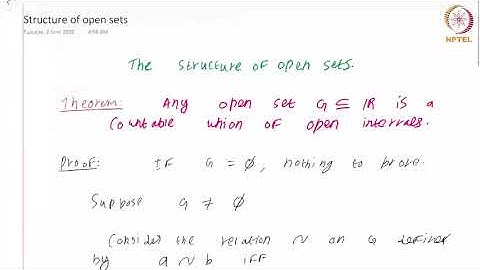 Structure of open sets
NPTEL
The structure of open sets.
Theorem: Any open set G ⊆ IR is a
Countable union of open intervals.
Proof: If G = ∅, nothing to prove.
Suppose G ≠ ∅
Consider the relation ~ on G defined
by a ~ b iff